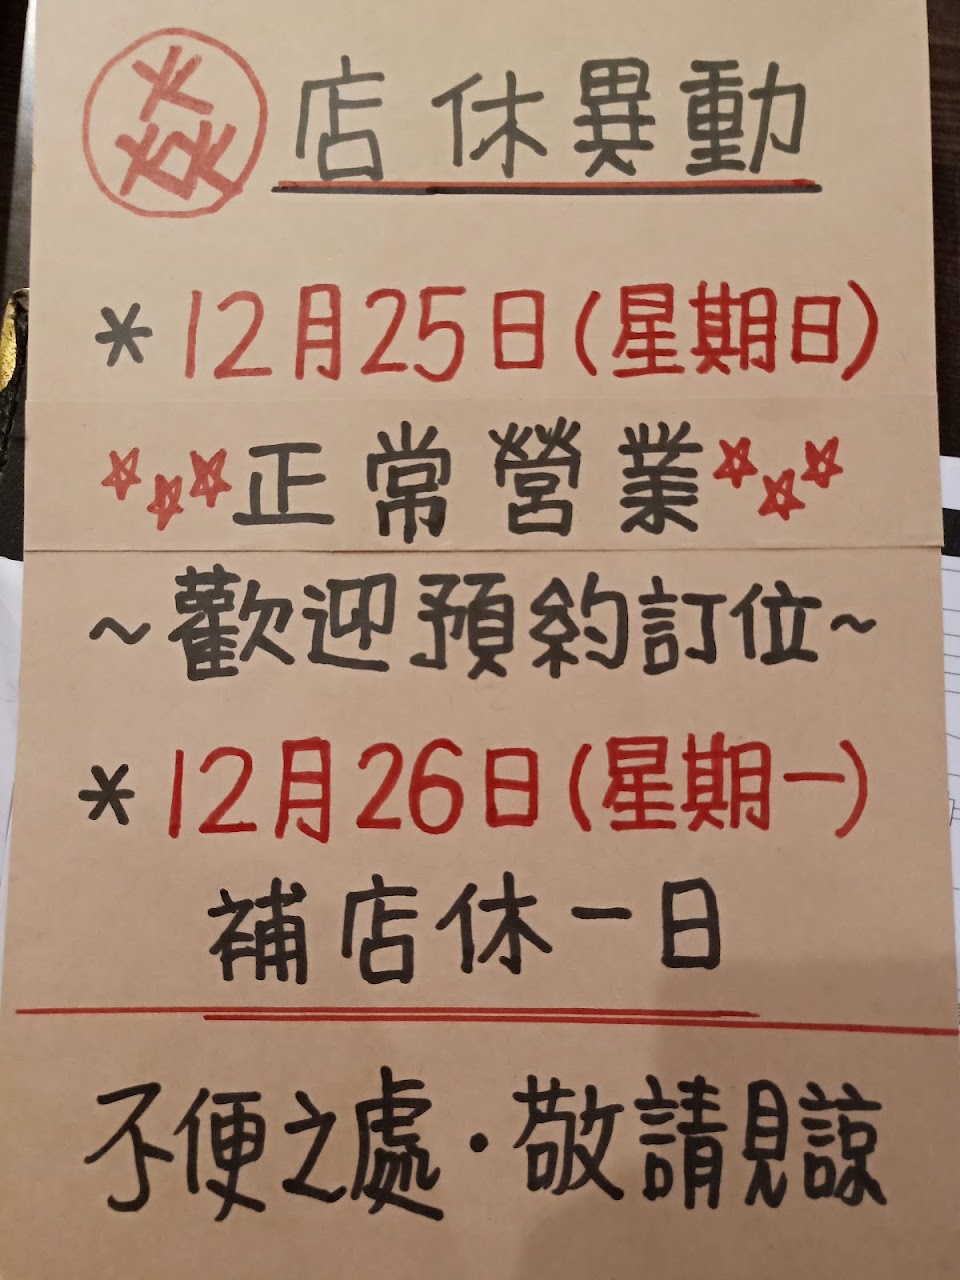 焱 店休異動
*12月25日(星期日)
正常營業
~歡迎預約訂位~
*12月26日(星期一)
補店休一日
不便之處·敬請見諒